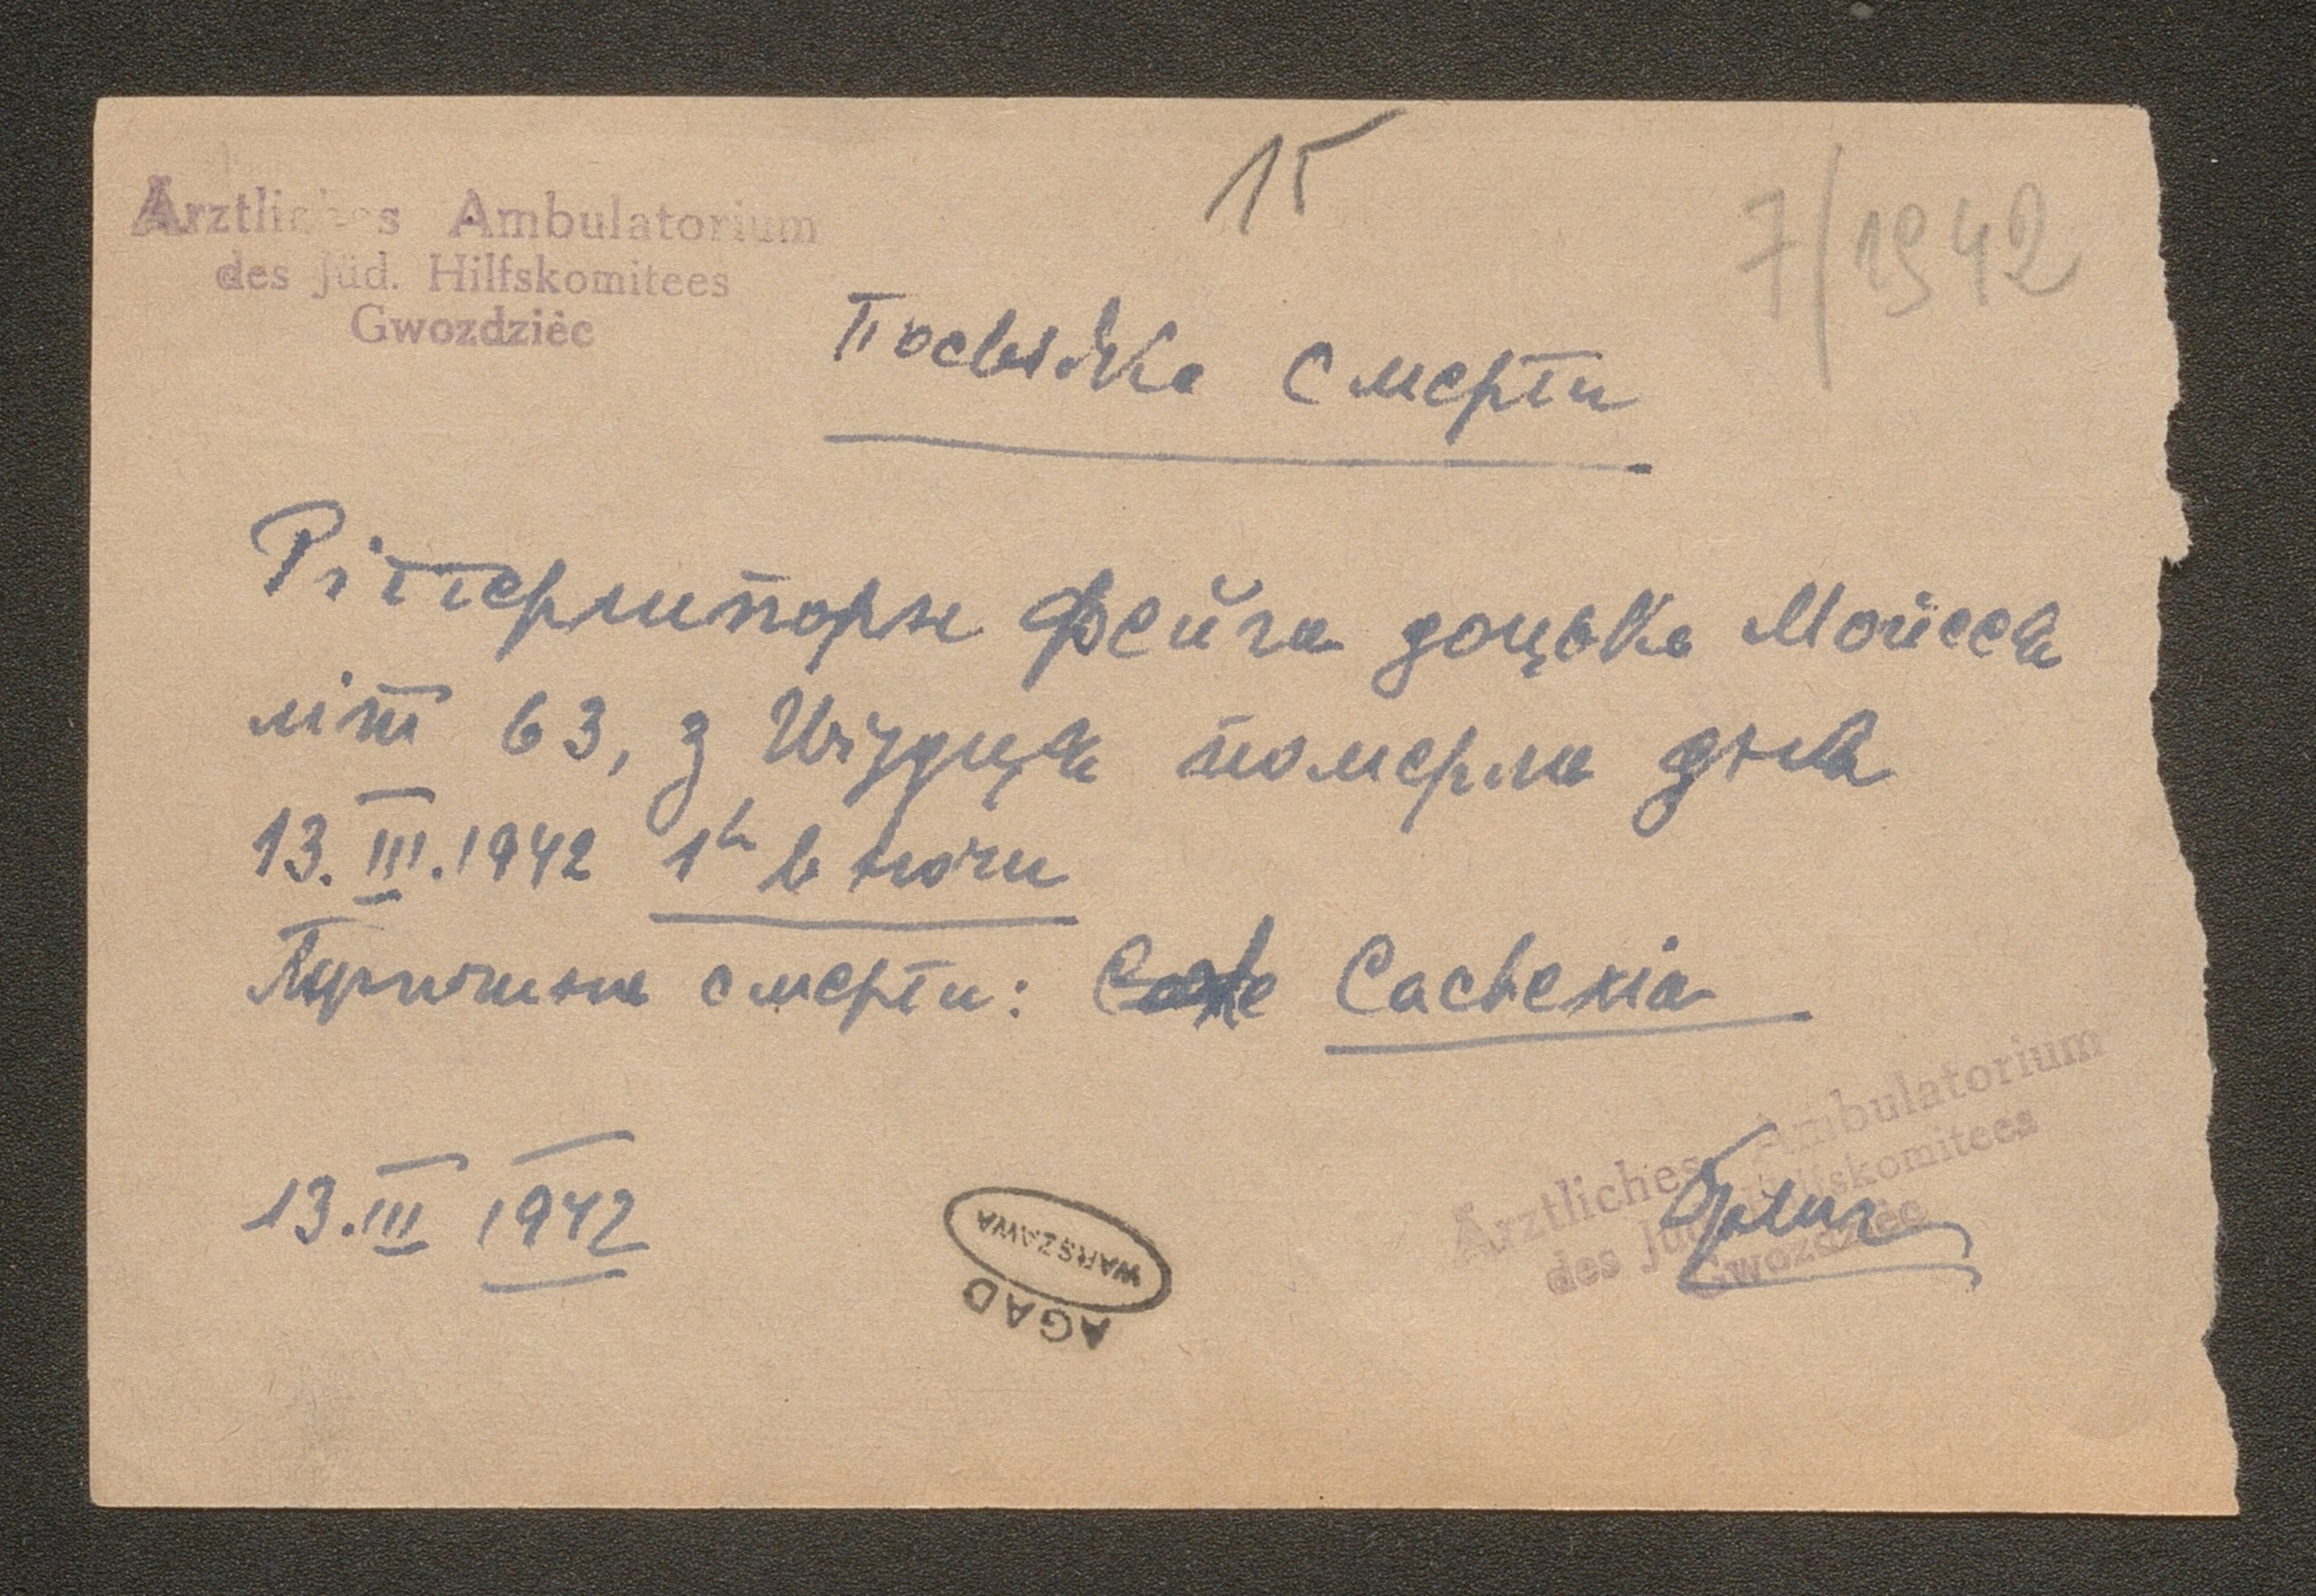 15
7/1942
Ärztliches Ambulatorium
des Jüd. Hilfskomitees
Gwozdziec
Посвідка смерти
Ріттерпорн Фейга доцька Мойсея
літ 63, з померла дня
13.III.1942 1h в ночи
Причина смерти: Cachexia
13.III 1942
Ärztliches Ambulatorium
des Jüd. Hilfskomitees
Gwozdziec
AGAD
WARSZAWA